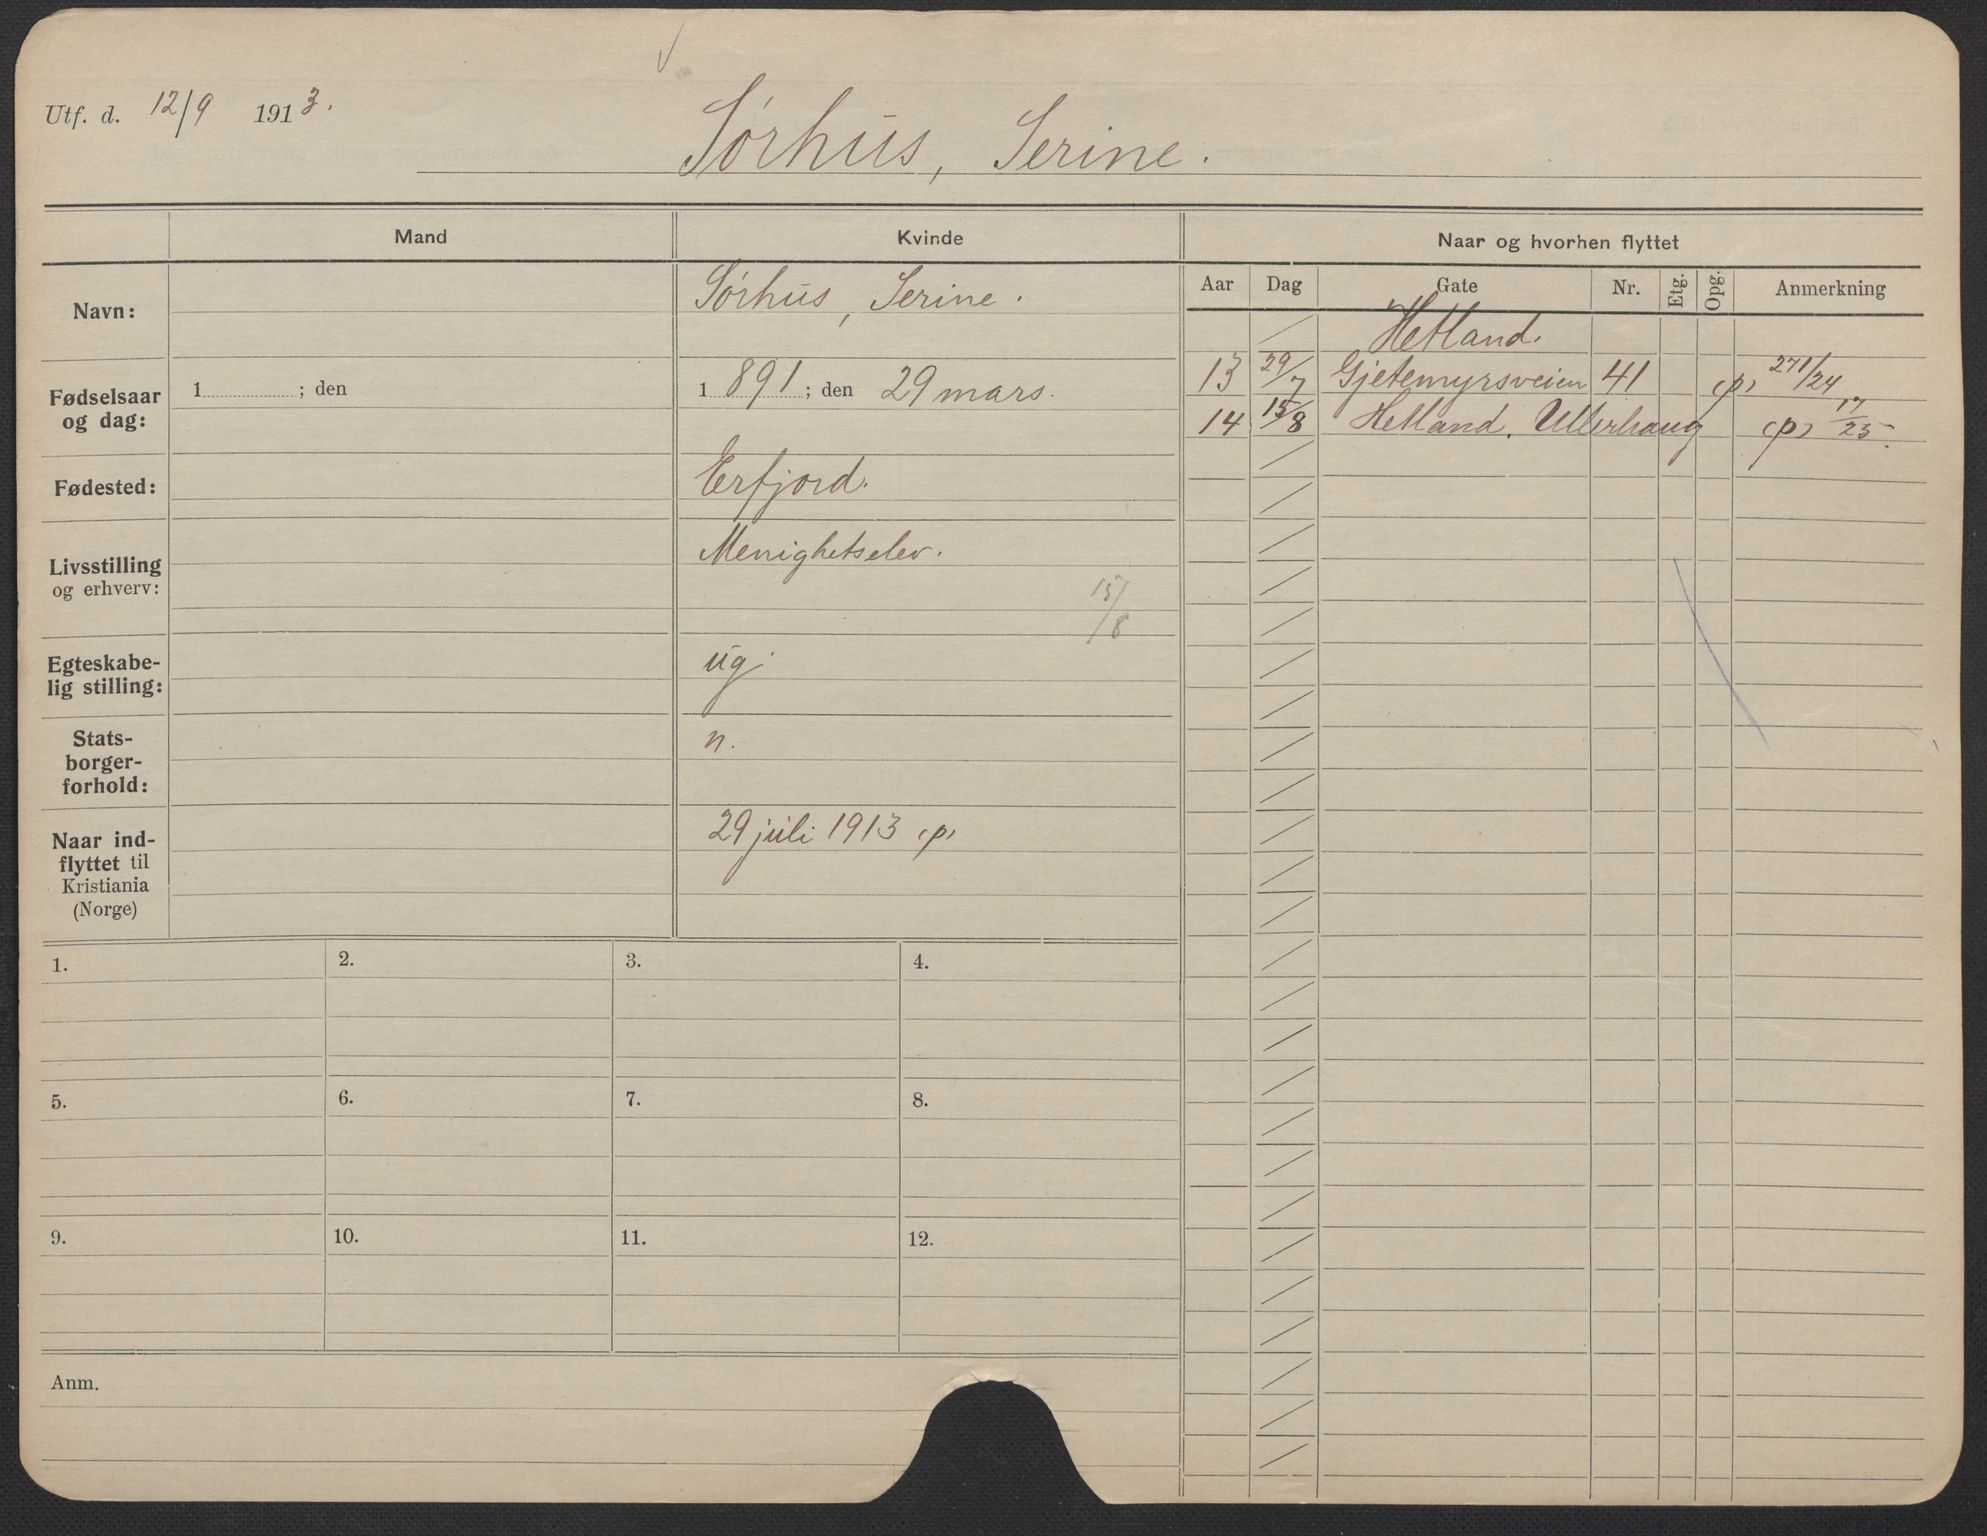 Utf. d. 12/9 1913.
Sørhus, Serine.
Mand
Kvinde
Naar og hvorhen flyttet
Aar Dag Gate Nr. Etg. Opg. Anmerkning
Navn:
Sørhus, Serine.
Hetland.
13 29/7 Gjetemyrsveien 41 (p) 271/24
14 15/8 Hetland. Ullerhaug (p) 17/25.
Fødselsaar
og dag:
1 ; den
1 891 ; den 29 mars.
Fødested:
Erfjord.
Livsstilling
og erhverv:
Menighetselev.
15/8
Egteskabe-
lig stilling:
ug.
Stats-
borger-
forhold:
n.
Naar ind-
flyttet til
Kristiania
(Norge)
29 juli 1913 (p)
1. 2. 3. 4.
5. 6. 7. 8.
9. 10. 11. 12.
Anm.